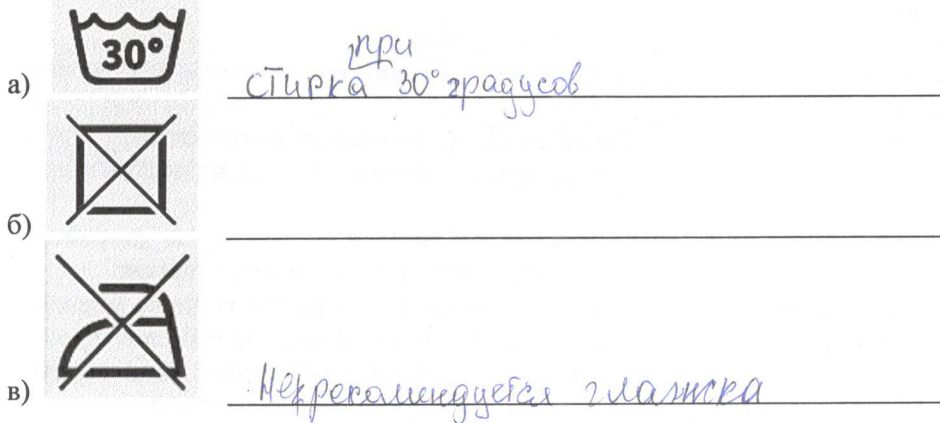 30°
при
а) стирка 30° градусов
б)
в) Не рекомендуется глажка